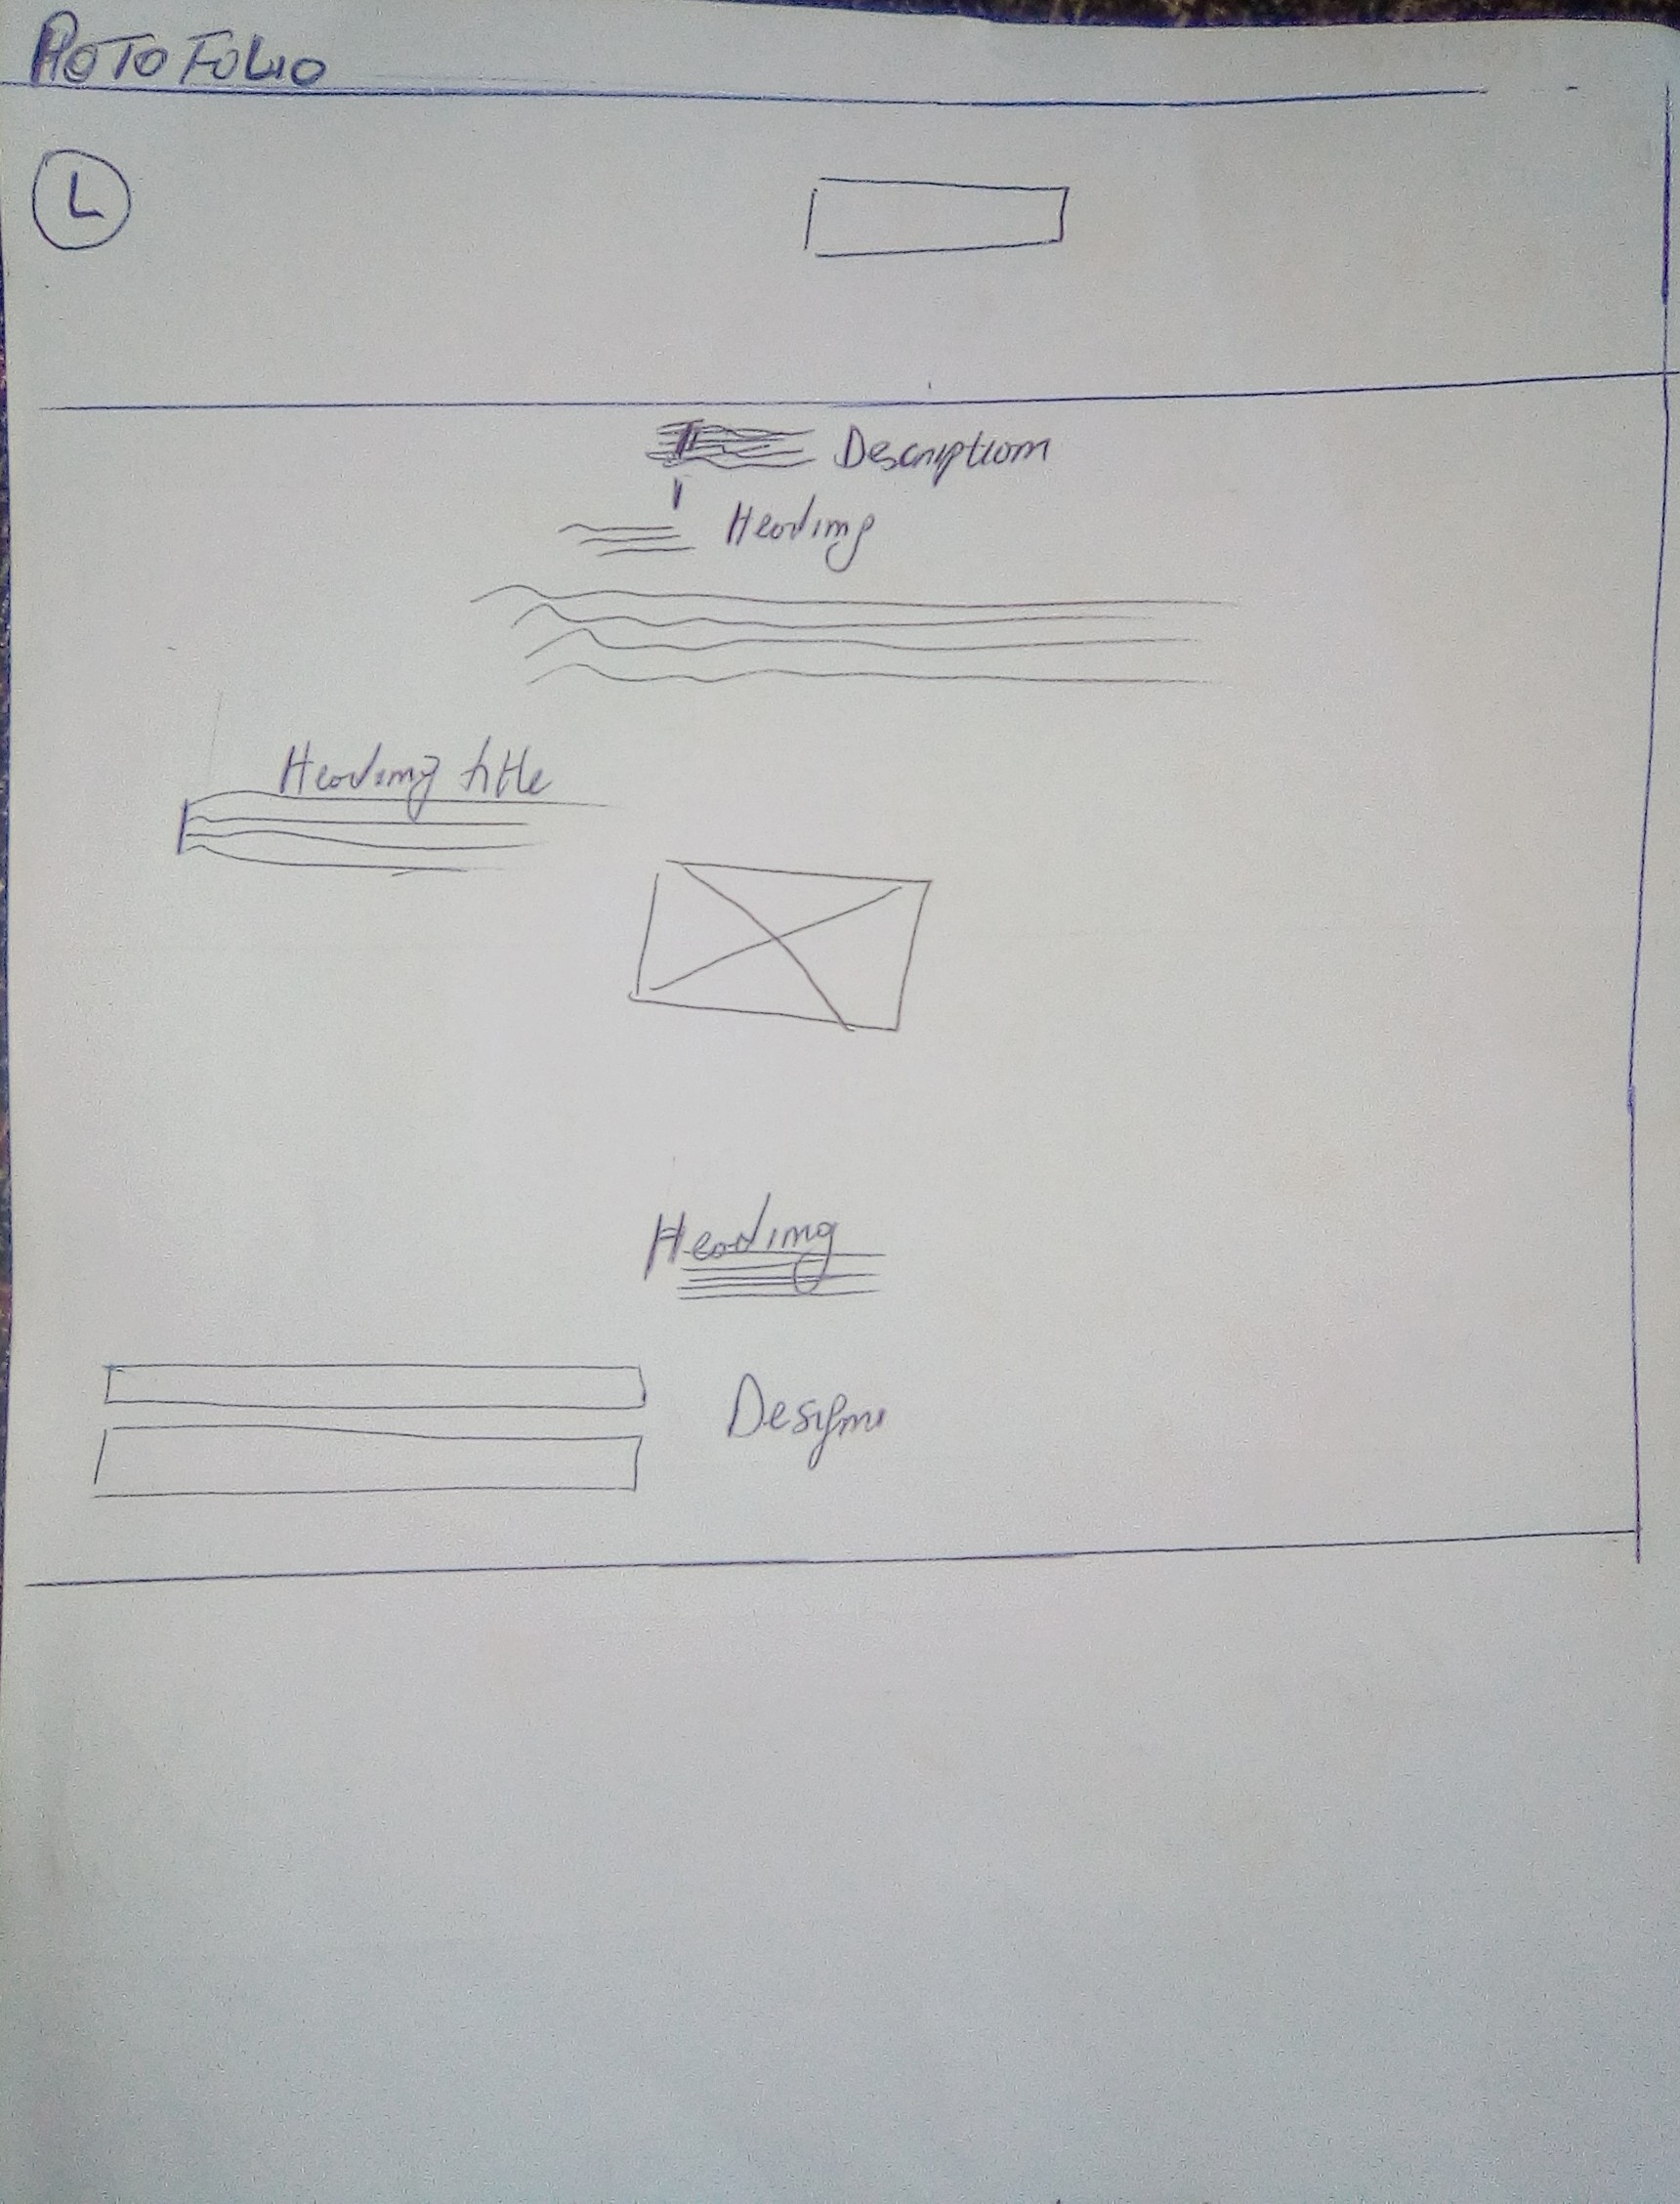 PROTOFOLIO
L
Description
Heading
Heading title
Heading
Design